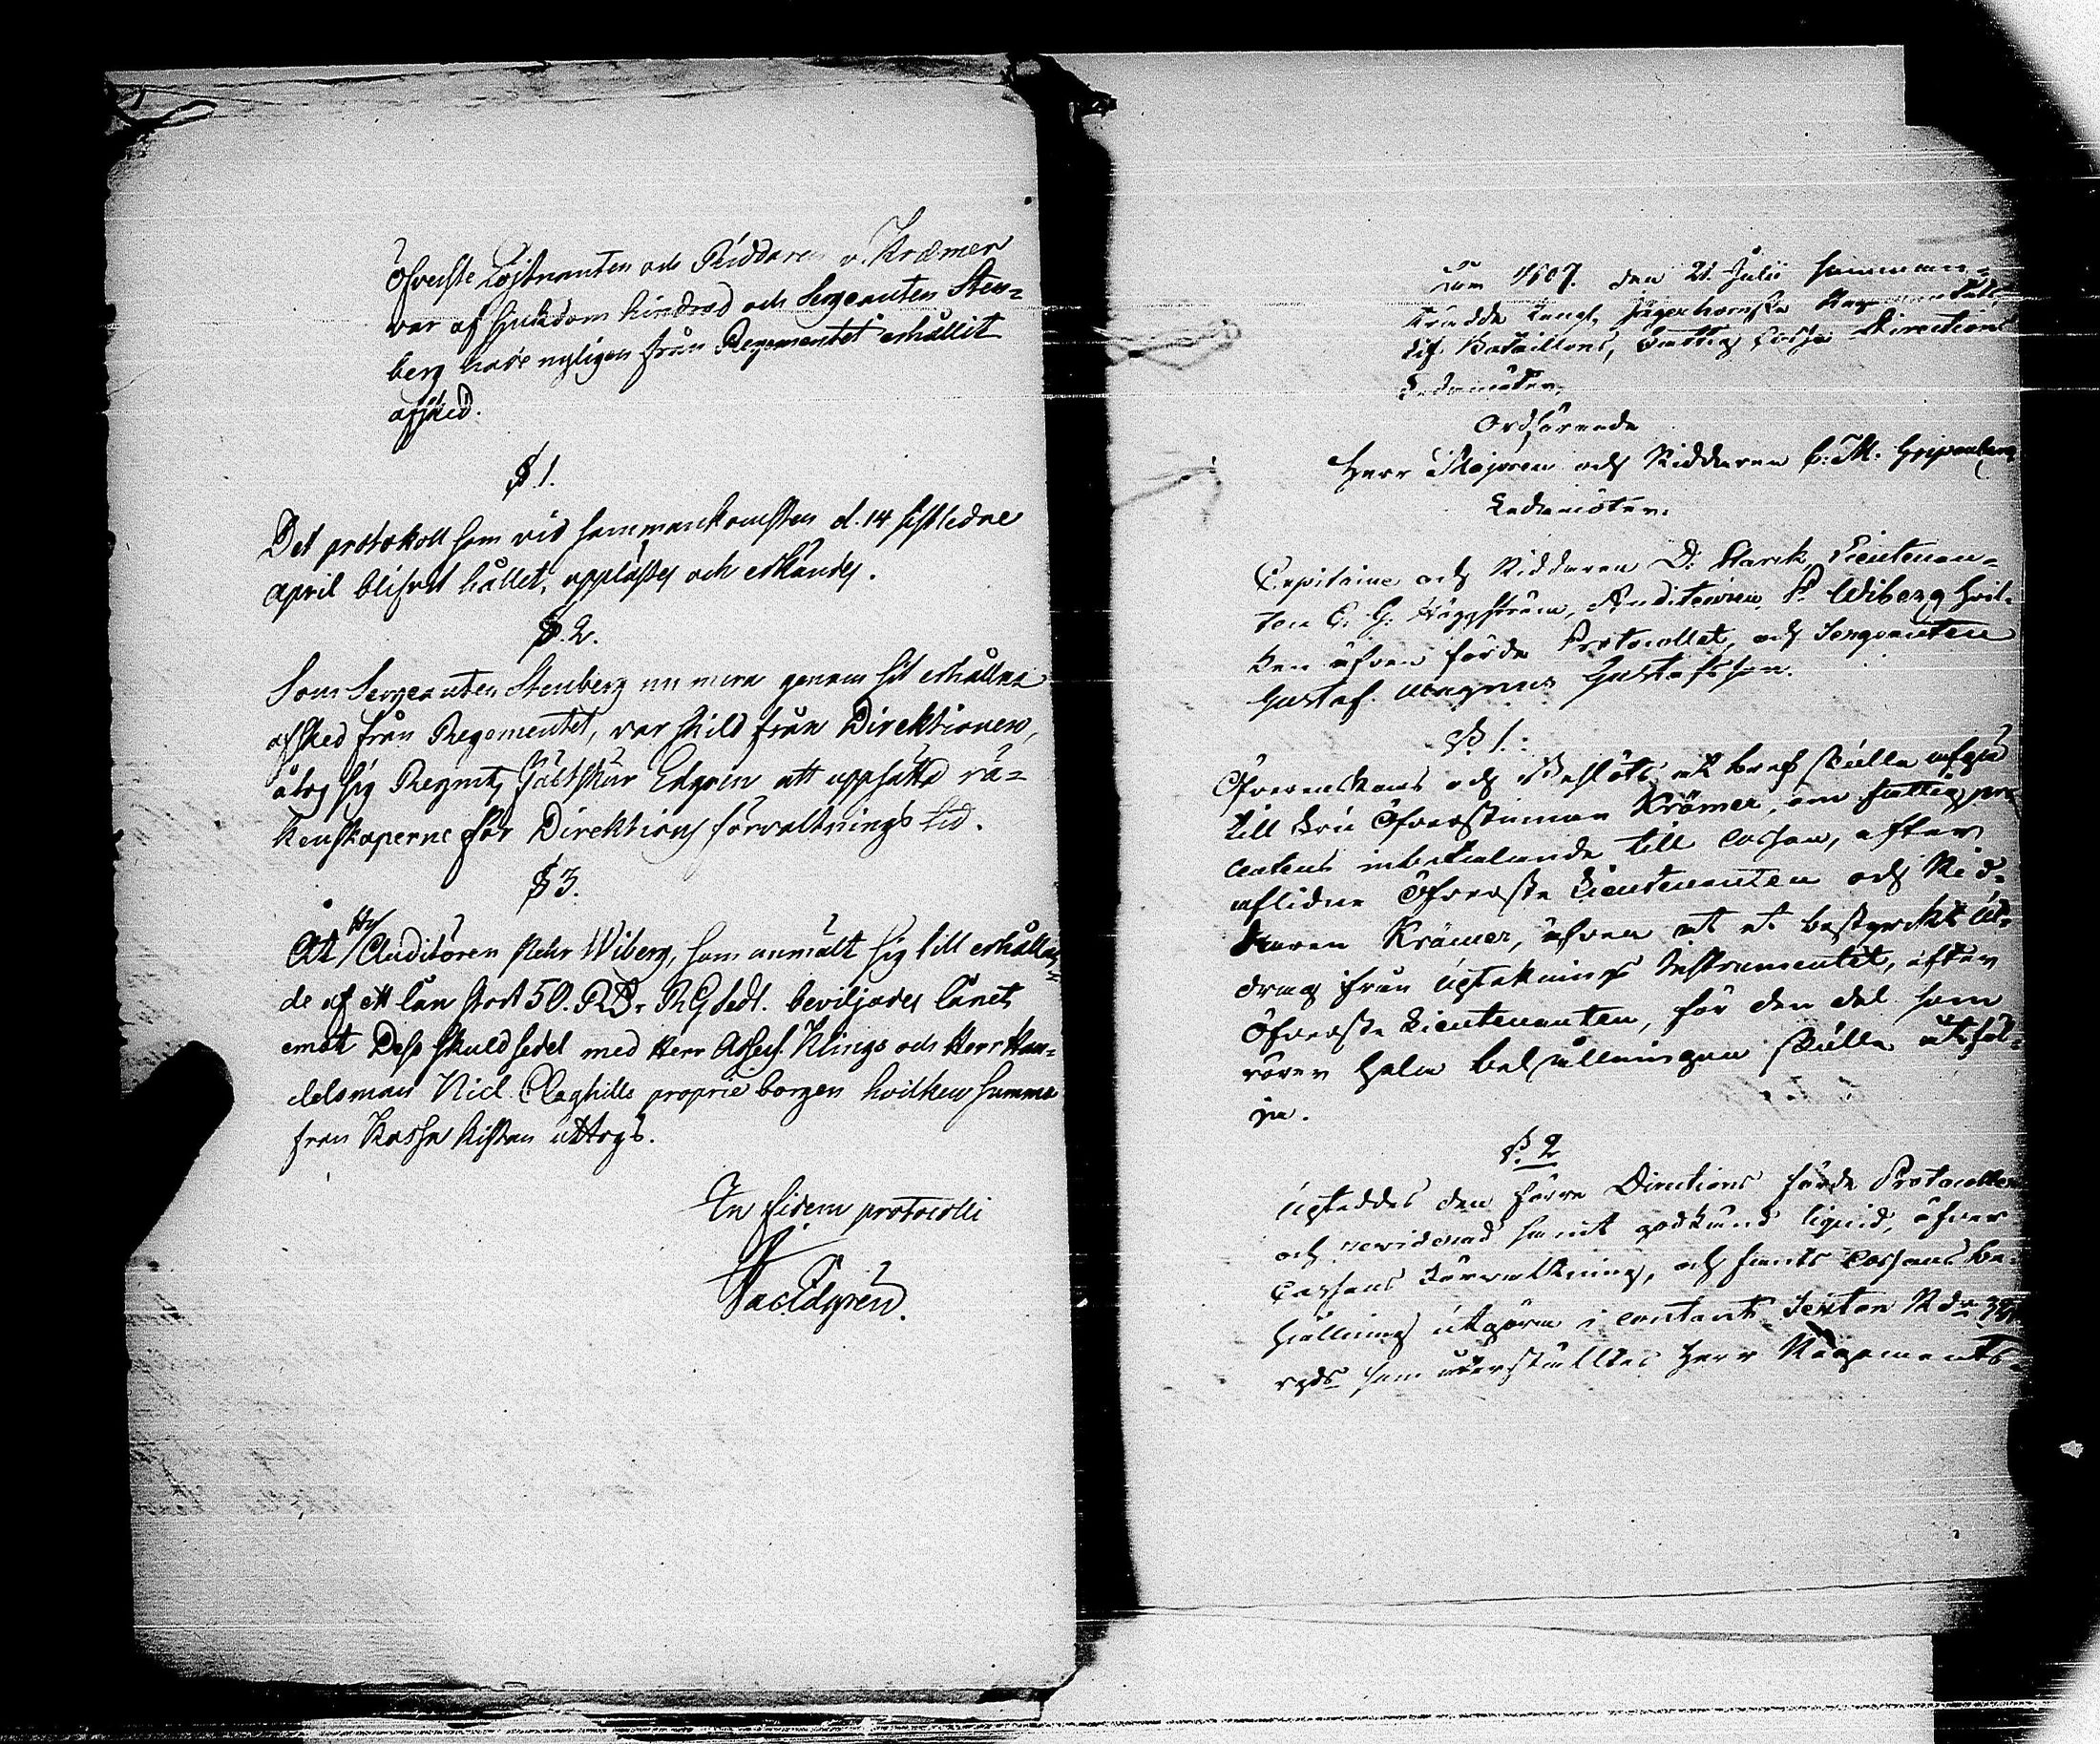 Öfverste Löjtnanten och Riddaren v. Kræmer
var af sjukdom hindrad och Sergeanten Sten=
berg hade nyligen från Regementet erhållit
afsked.
§ 1.
Det protokoll som vid sammankomsten d. 14 sistledne
april blifvit hållet, upplästes och erkändes.
§. 2.
Som Sergeanten Stenberg nu mera genom sit erhållna
afsked från Regementet, var skild från Direktionen,
åtog sig Regmts Fältskär Edgren att uppsätta rä=
kenskaperne för Direktions förvaltnings tid.
§ 3.
At Hr Auditören Petr Wiberg, som anmält sig till erhållan=
de af ett lån stort 50. RDr RGsedl. beviljades lånet
emot Dess skuldsedel med Herr Assess. Klings och Herr Han=
delsman Nicl. Claghills proprie borgen hvilken summa
från Kassa kistan uttogs.
In fidem protocolli
Jac Edgren.
1807. den 21 Julii samman=
trädde Kongl. Jägerhornska Regementets
Lif Bataillons, Fattig Cassa Directions
Ledamöter,
Ordförande
Herr Majoren och Riddaren C. M. Gripenberg
Ledamöter.
Capitaine och Riddaren D: Starck, Lieutenan=
ten C. G. Häggström, Auditeuren P. Wiberg hvil=
ken äfven förde Protocollet, och Sergeanten
Gustaf Magnus Gustafsson.
§. 1.
Öfverenskoms och Beslöts at bref skulle afgå
till Fru Öfverstinnan Krämer, om fattig pro
centens inbetalande till cassan, efter
aflidne Öfverste Lieutenanten och Rid=
daren Krämer, äfven at et bestyrkt Ut=
drag från Upteknings Instrumentet, efter
Öfverste Lieutenanten, för den del som
rörer hela behållningen skulle utföl=
ja.
§. 2
Upteddes den förre Directions förde Protocoller
och reviderad samt godkänd liquid, öfver
Cassans Förvaltning, och fants Cassans be=
hållning utgöra i contant Sexton Rdr 32
rgds som öfverstältes Herr Regements=